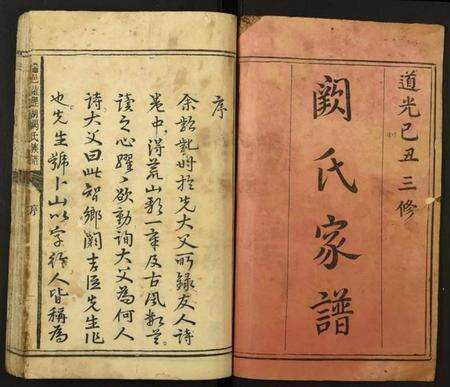 道光己丑三修
闕氏家譜
序
余齠齔時於先大父所錄友人詩
卷中得荒山彩一章及古風數首
讀之心躍躍欲動詢大父為何人
詩大父曰此智鄉闕吉臣先生作
也先生號卜山以字行人皆稱為
闕氏族譜
序